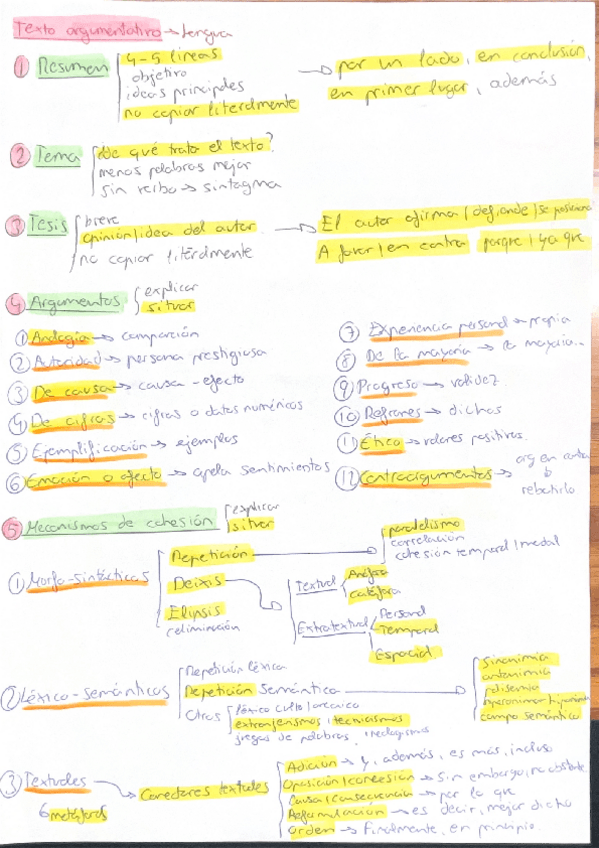 Texto argumentativo → Lengua
① Resumen
4-5 líneas
objetivo
ideas principales
no copiar literalmente
→ por un lado, en conclusión,
en primer lugar, además
② Tema
¿de qué trata el texto?
menos palabras mejor
sin verbo → sintagma
③ Tesis
breve
opinión/idea del autor
no copiar literalmente
→ El autor afirma/defiende/se posiciona
A favor/en contra porque/ya que
④ Argumentos
explicar
situar
① Analogía → comparación
② Autoridad → persona prestigiosa
③ De causa → causa-efecto
④ De cifras → cifras o datos numéricos
⑤ Ejemplificación → ejemplos
⑥ Emoción o afecto → apela sentimientos
⑦ Experiencia personal → propia
⑧ De la mayoría → la mayoría...
⑨ Progreso → validez
⑩ Refranes → dichos
⑪ Ético → valores positivos
⑫ Contraargumentos → arg en contra
rebatirlo
⑤ Mecanismos de cohesión
explicar
situar
① Morfo-sintácticos
Repetición
paralelismo
correlación
cohesión temporal/modal
Deixis
Textual
Anáfora
Catáfora
Extratextual
Personal
Temporal
Espacial
Elipsis
(eliminación)
② Léxico-semánticos
Repetición léxica
Repetición semántica
sinonimia
antonimia
polisemia
hiperonimia
campo semántico
Otros
léxico culto/arcaico
extranjerismos, tecnicismos
juegos de palabras, neologismos
③ Textuales → Conectores textuales
Adición → y, además, es más, incluso
Oposición/concesión → sin embargo, no obstante
Causa/consecuencia → por lo que
Reformulación → es decir, mejor dicho
Orden → Finalmente, en principio.
metáfors